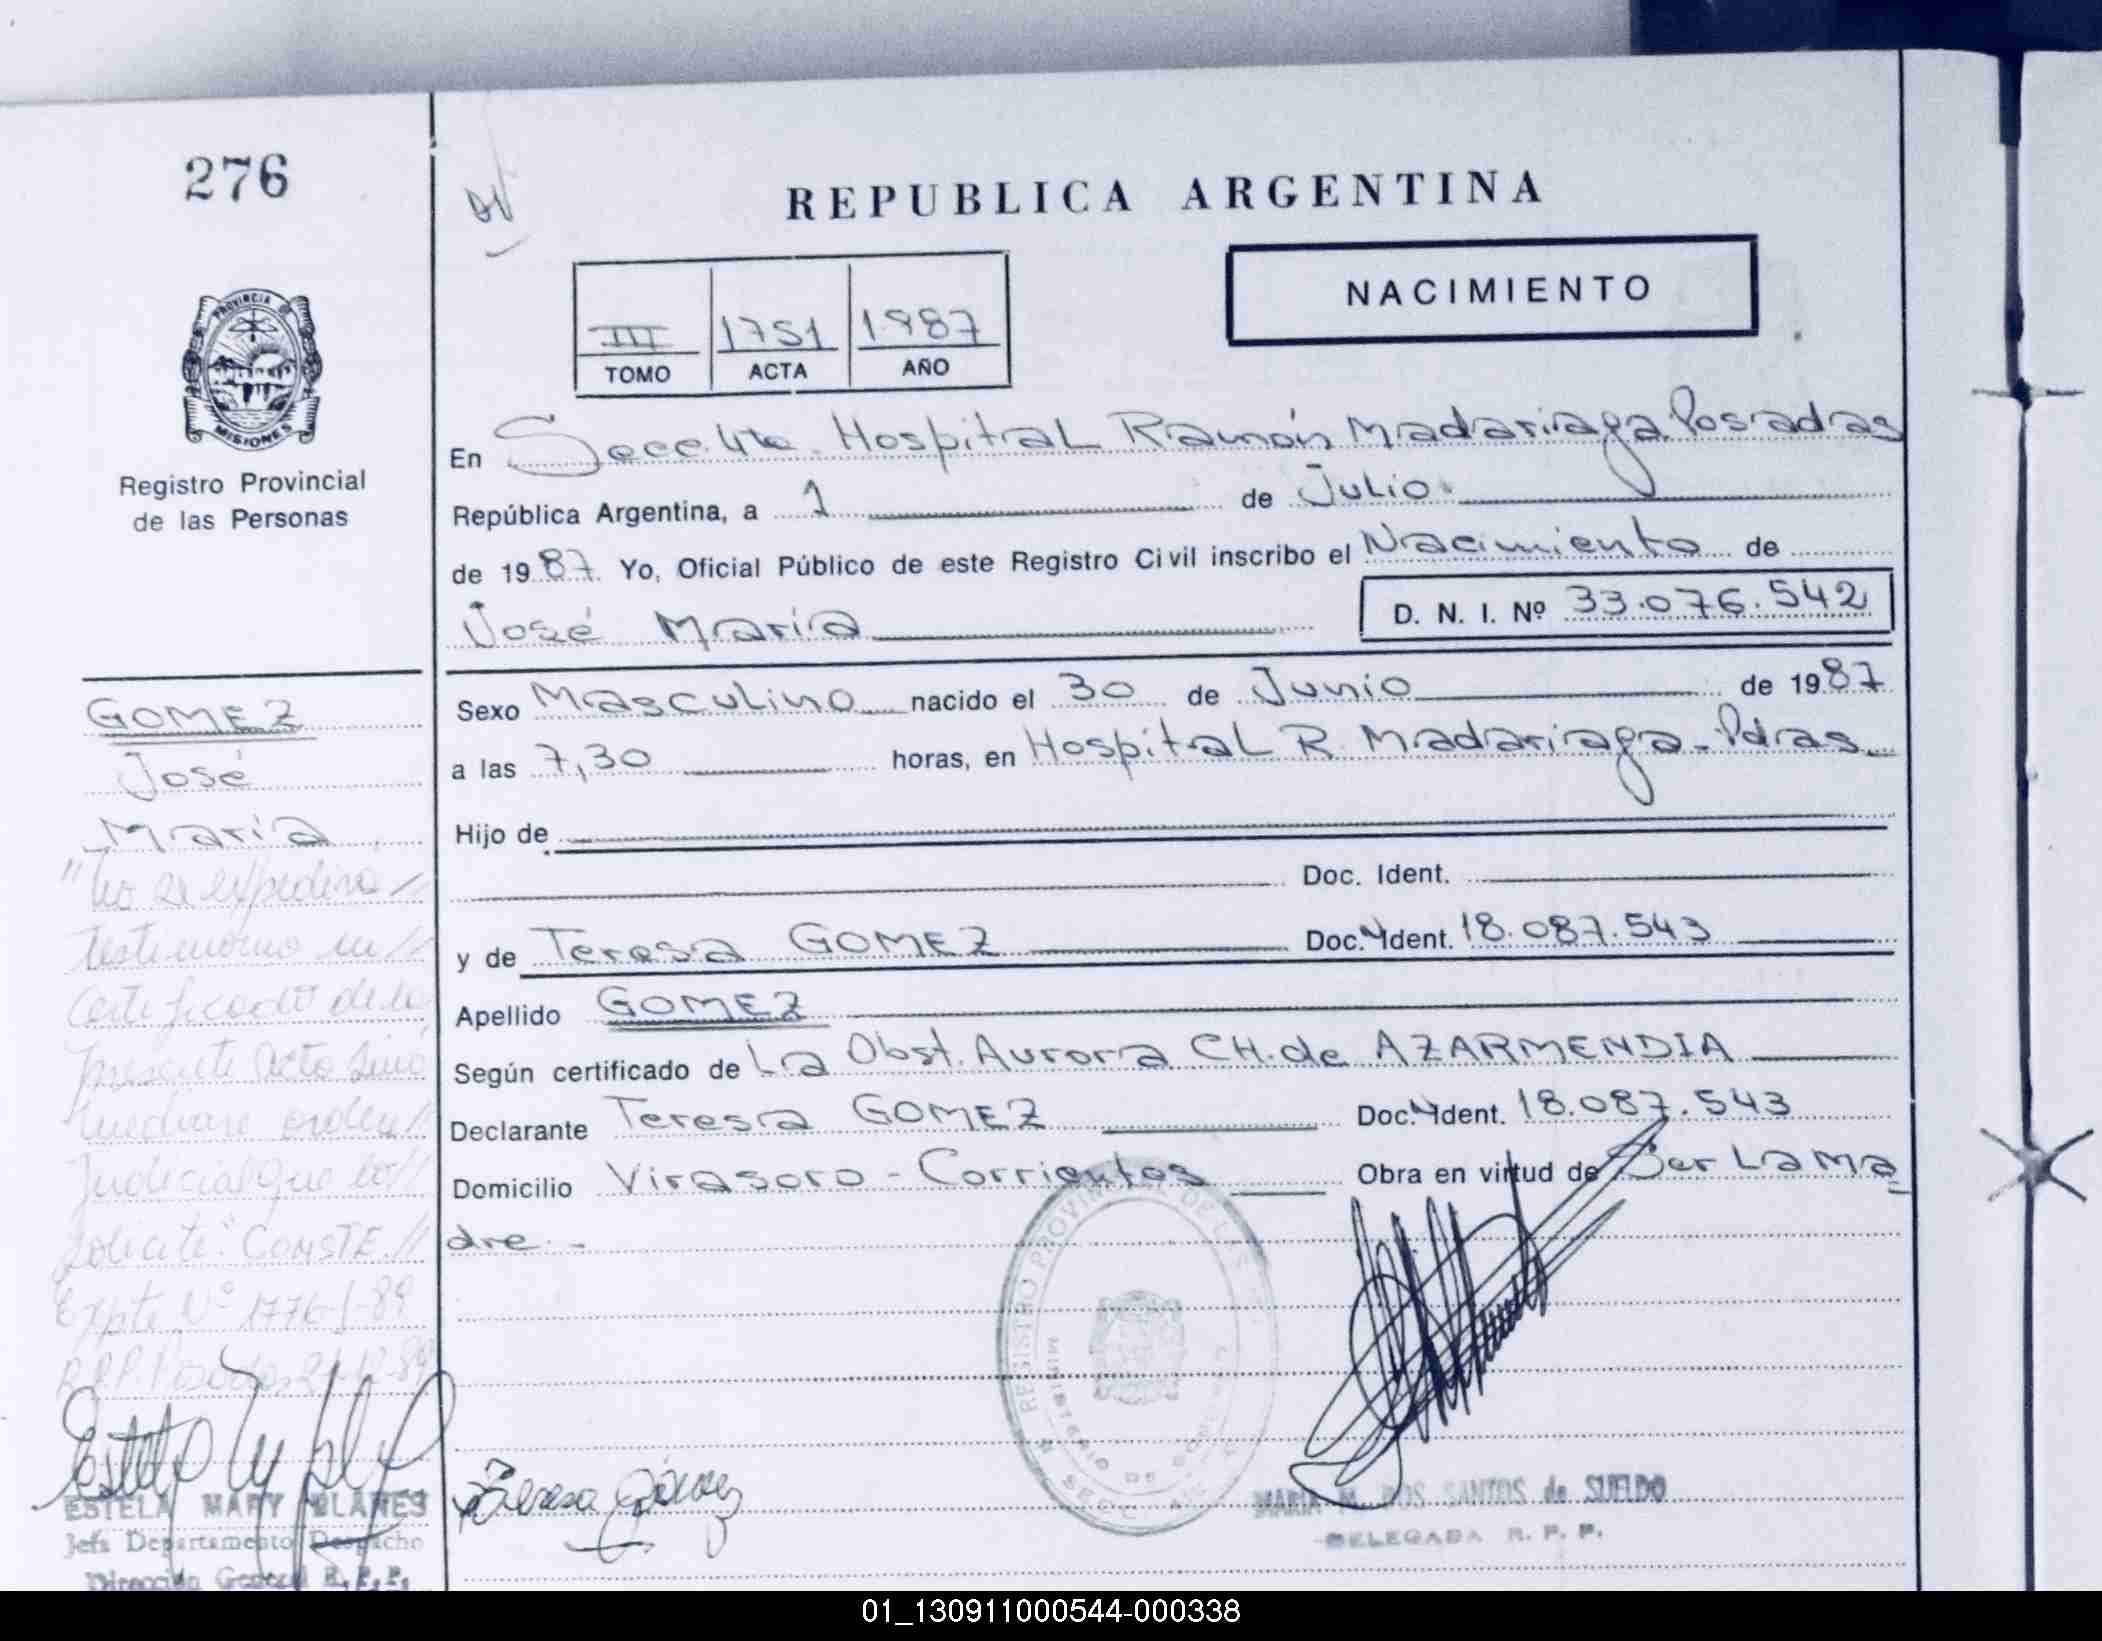 276
REPUBLICA ARGENTINA
NACIMIENTO
III 1751 1987
TOMO ACTA AÑO
PROVINCIA DE
MISIONES
Registro Provincial
de las Personas
En Secc. 4ta. Hospital Ramón Madariaga Posadas
República Argentina, a 1 de Julio
de 1987. Yo, Oficial Público de este Registro Civil inscribo el Nacimiento de
José María D. N. I. Nº 33.076.542
GOMEZ
José
María
Sexo Masculino nacido el 30 de Junio de 1987
a las 7,30 horas, en Hospital R. Madariaga - Pdas
Hijo de
Doc. Ident.
y de Teresa GOMEZ Doc. Ident. 18.087.543
Apellido GOMEZ
Según certificado de La Obst. Aurora CH. de AZARMENDIA
Declarante Teresa GOMEZ Doc. Ident. 18.087.543
Domicilio Virasoro - Corrientes Obra en virtud de Ser La Ma
dre.-
"No se expedira //
testimonio ni //
Certificado de la
presente Acta Sino
mediare orden //
Judicial que lo //
solicite." CONSTE. //
Expte Nº 1776-/-89
R.P.P. Posadas,
ESTELA MARY BLANES
Jefa Departamento Despacho
Dirección General R. P. P.
REGISTRO PROVINCIAL DE LAS
MINISTERIO DE GOBIERNO
SECC.
Teresa Gómez
MARIA M. DOS SANTOS de SUELDO
DELEGADA R. P. P.
01_130911000544-000338